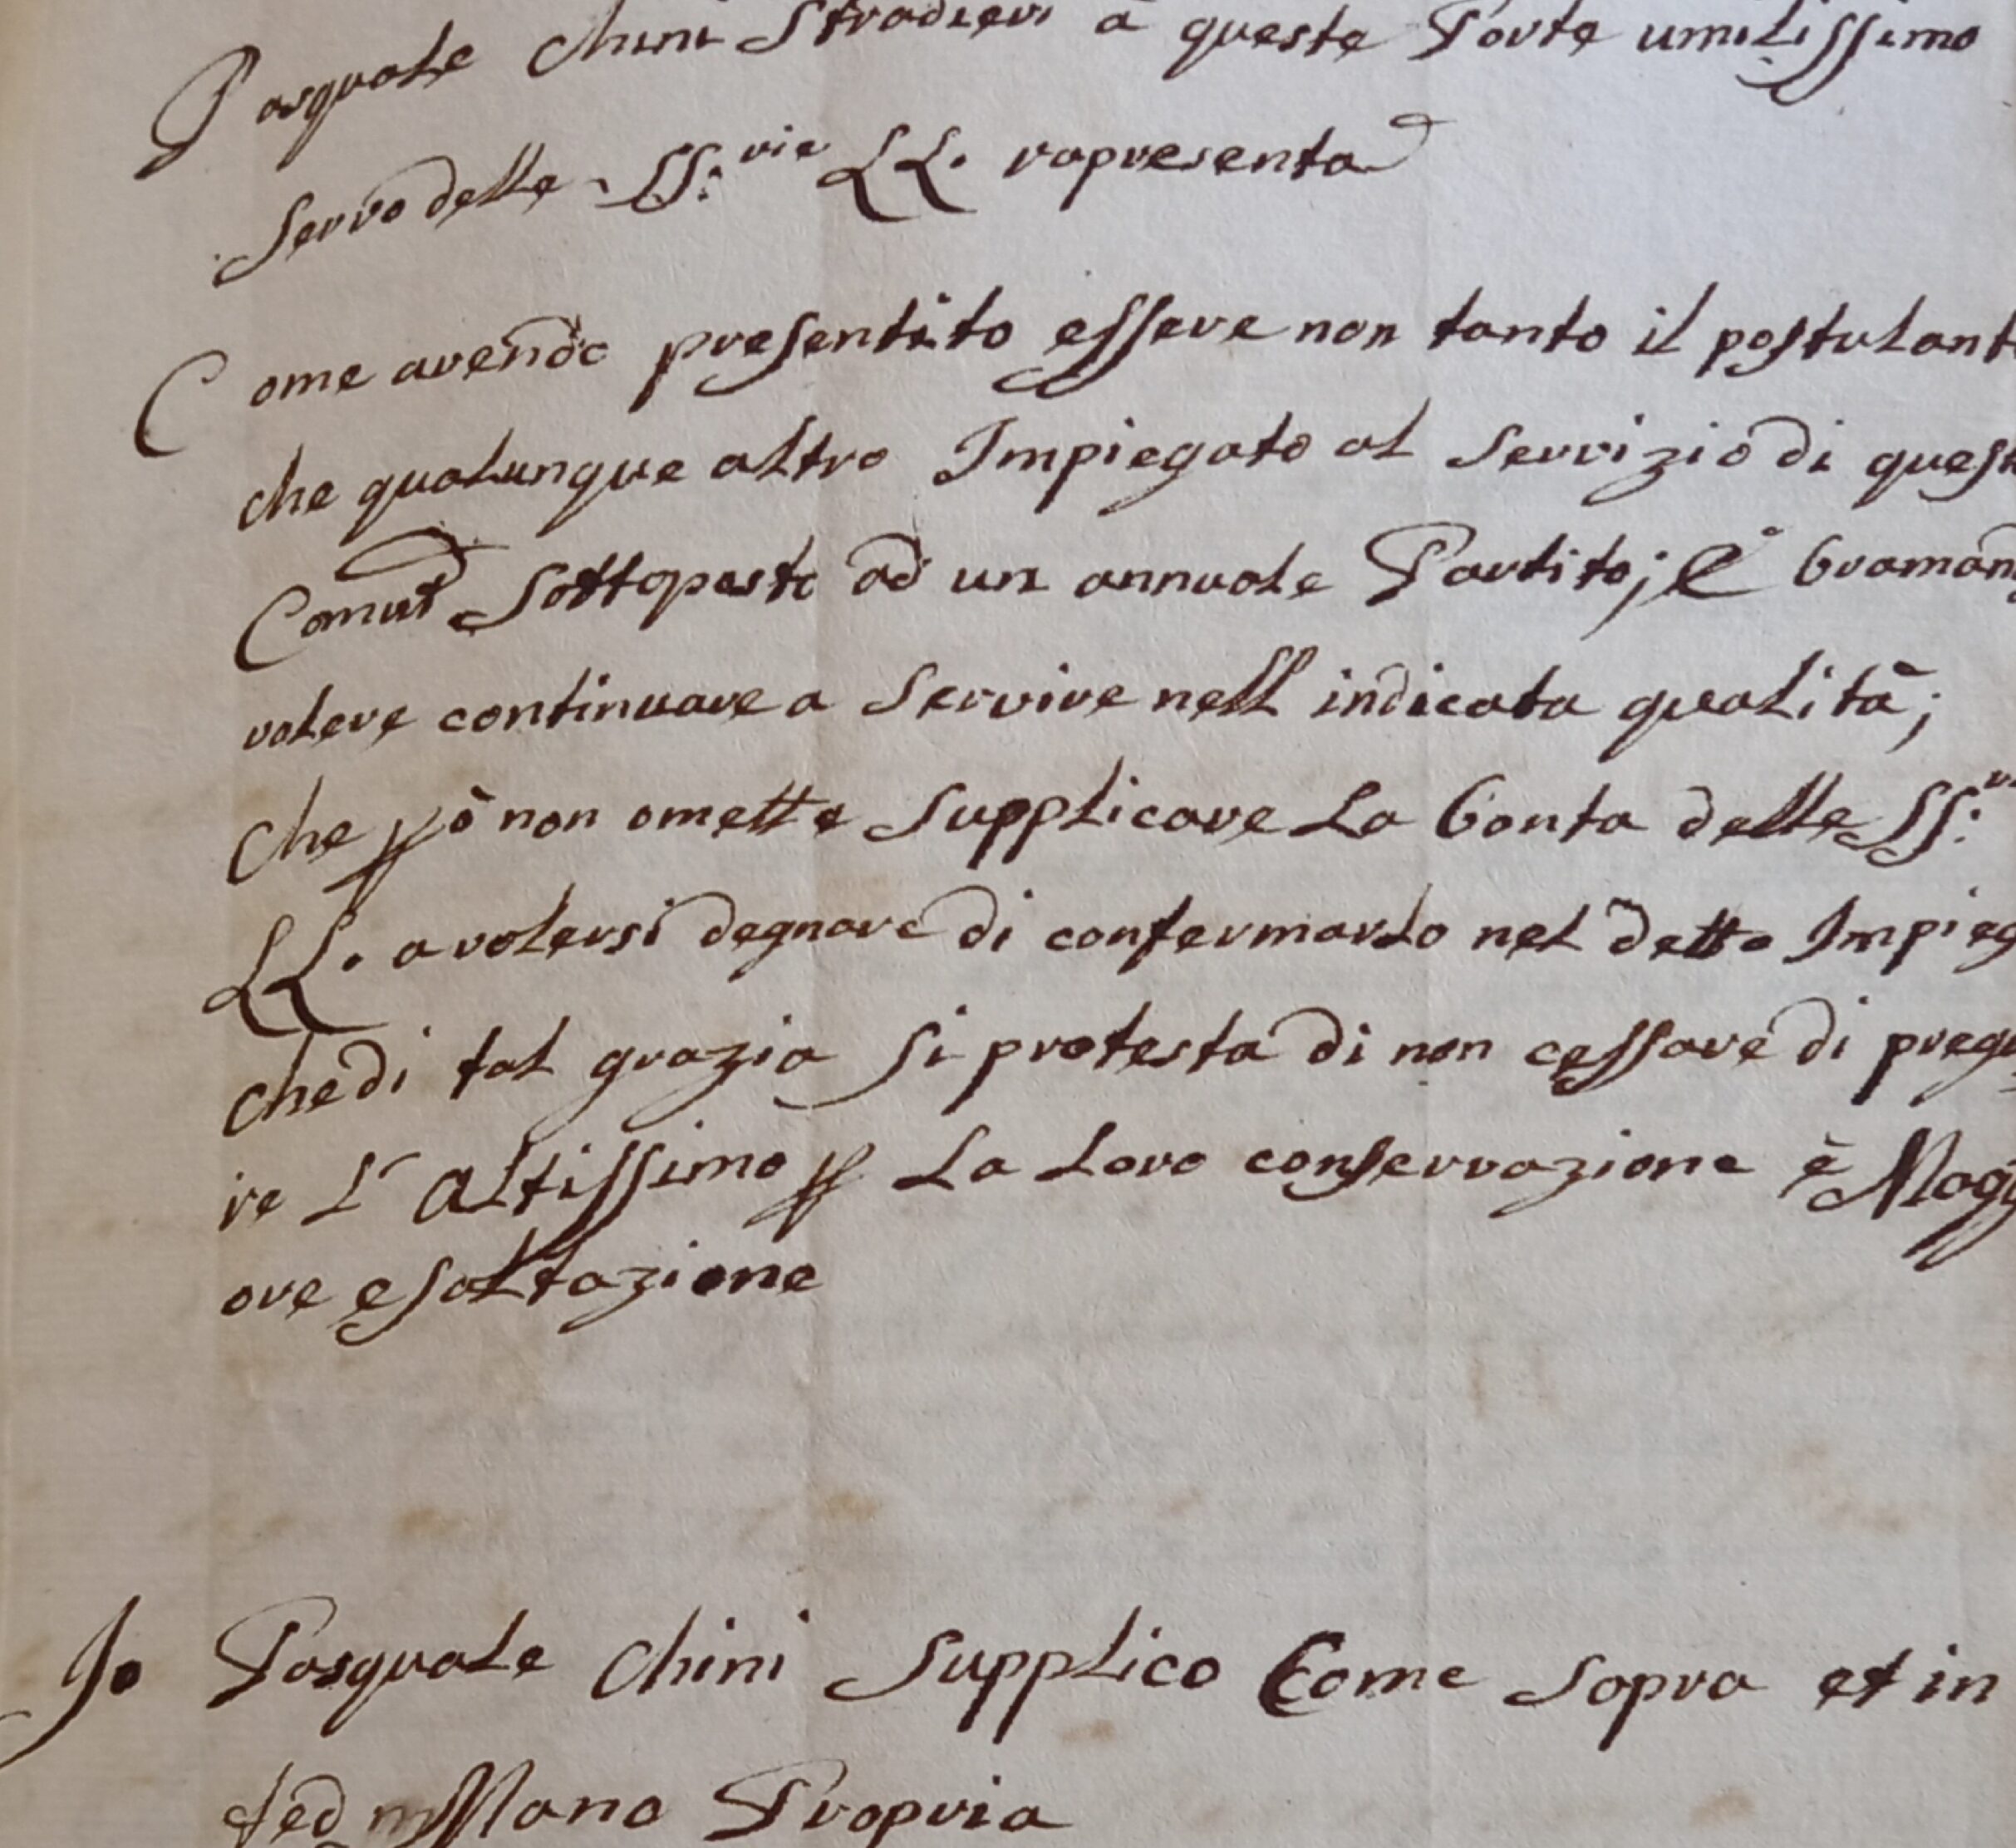 Pasquale Chini Stradieri à queste Porte umilissimo
Servo delle SS:rie LL. rapresenta
Come avendo presentito essere non tanto il postulant
che qualunque altro Impiegato al Servizio di quest
Comut sottoposto ad un annuale Partito; E braman
volere continuare a Servire nell indicata qualità;
Che pò non omette Supplicare La bonta delle SS:
LL. a volersi degnare di confermarlo nel detto Impieg
che di tal grazia si protesta di non cessare di preg
re L' Altissimo p La Loro conservazione è Magg
ore esaltazione
Io Pasquale Chini Supplico Come Sopra et in
fed Mano Propria